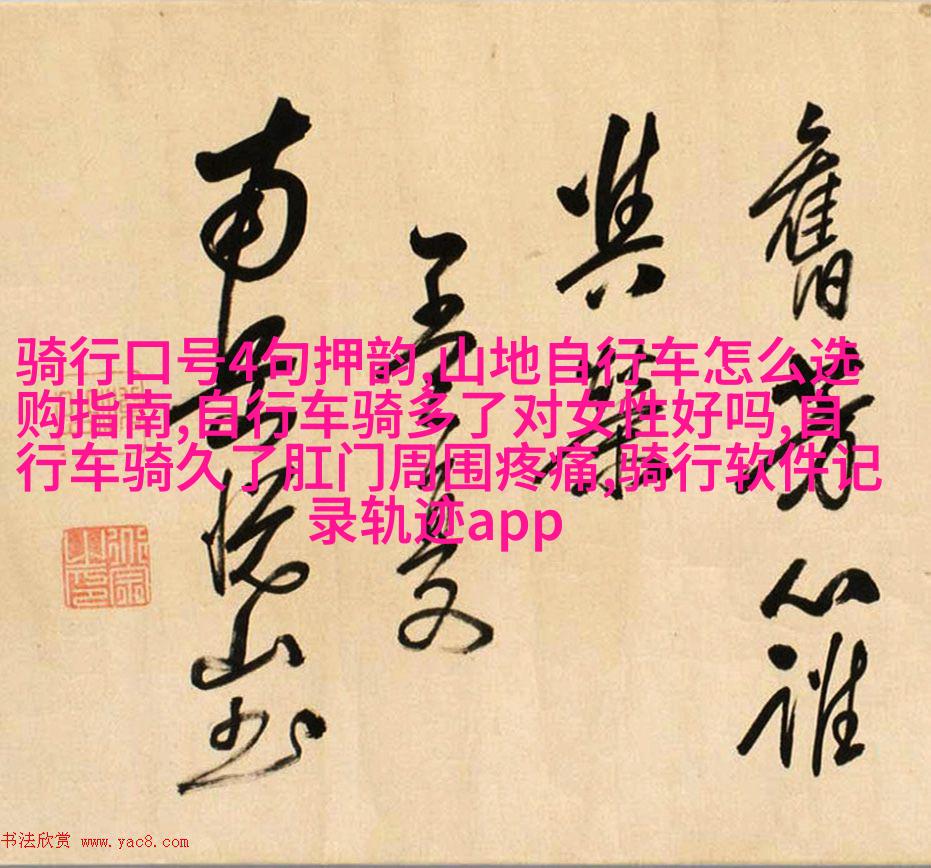 舊心誰
與
夏
南岳悅山書
骑行口号4句押韵,山地自行车怎么选
购指南,自行车骑多了对女性好吗,自
行车骑久了肛门周围疼痛,骑行软件记
录轨迹app
书法欣赏 www.yac8.com